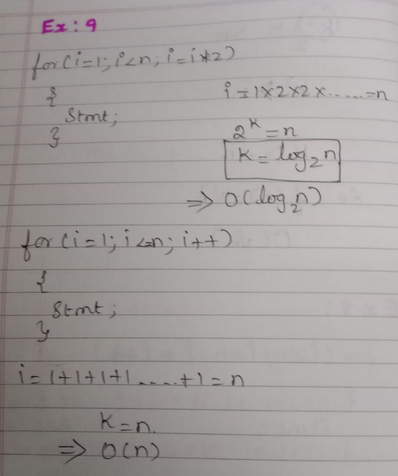 Ex: 9
for(i=1; i<n; i=i*2)
{
Stmt;
}
i=1×2×2×......=n
2^k=n
k=log₂n
⇒ O(log₂n)
for(i=1; i<=n; i++)
{
Stmt;
}
i=1+1+1+1.....+1=n
k=n.
⇒ O(n)